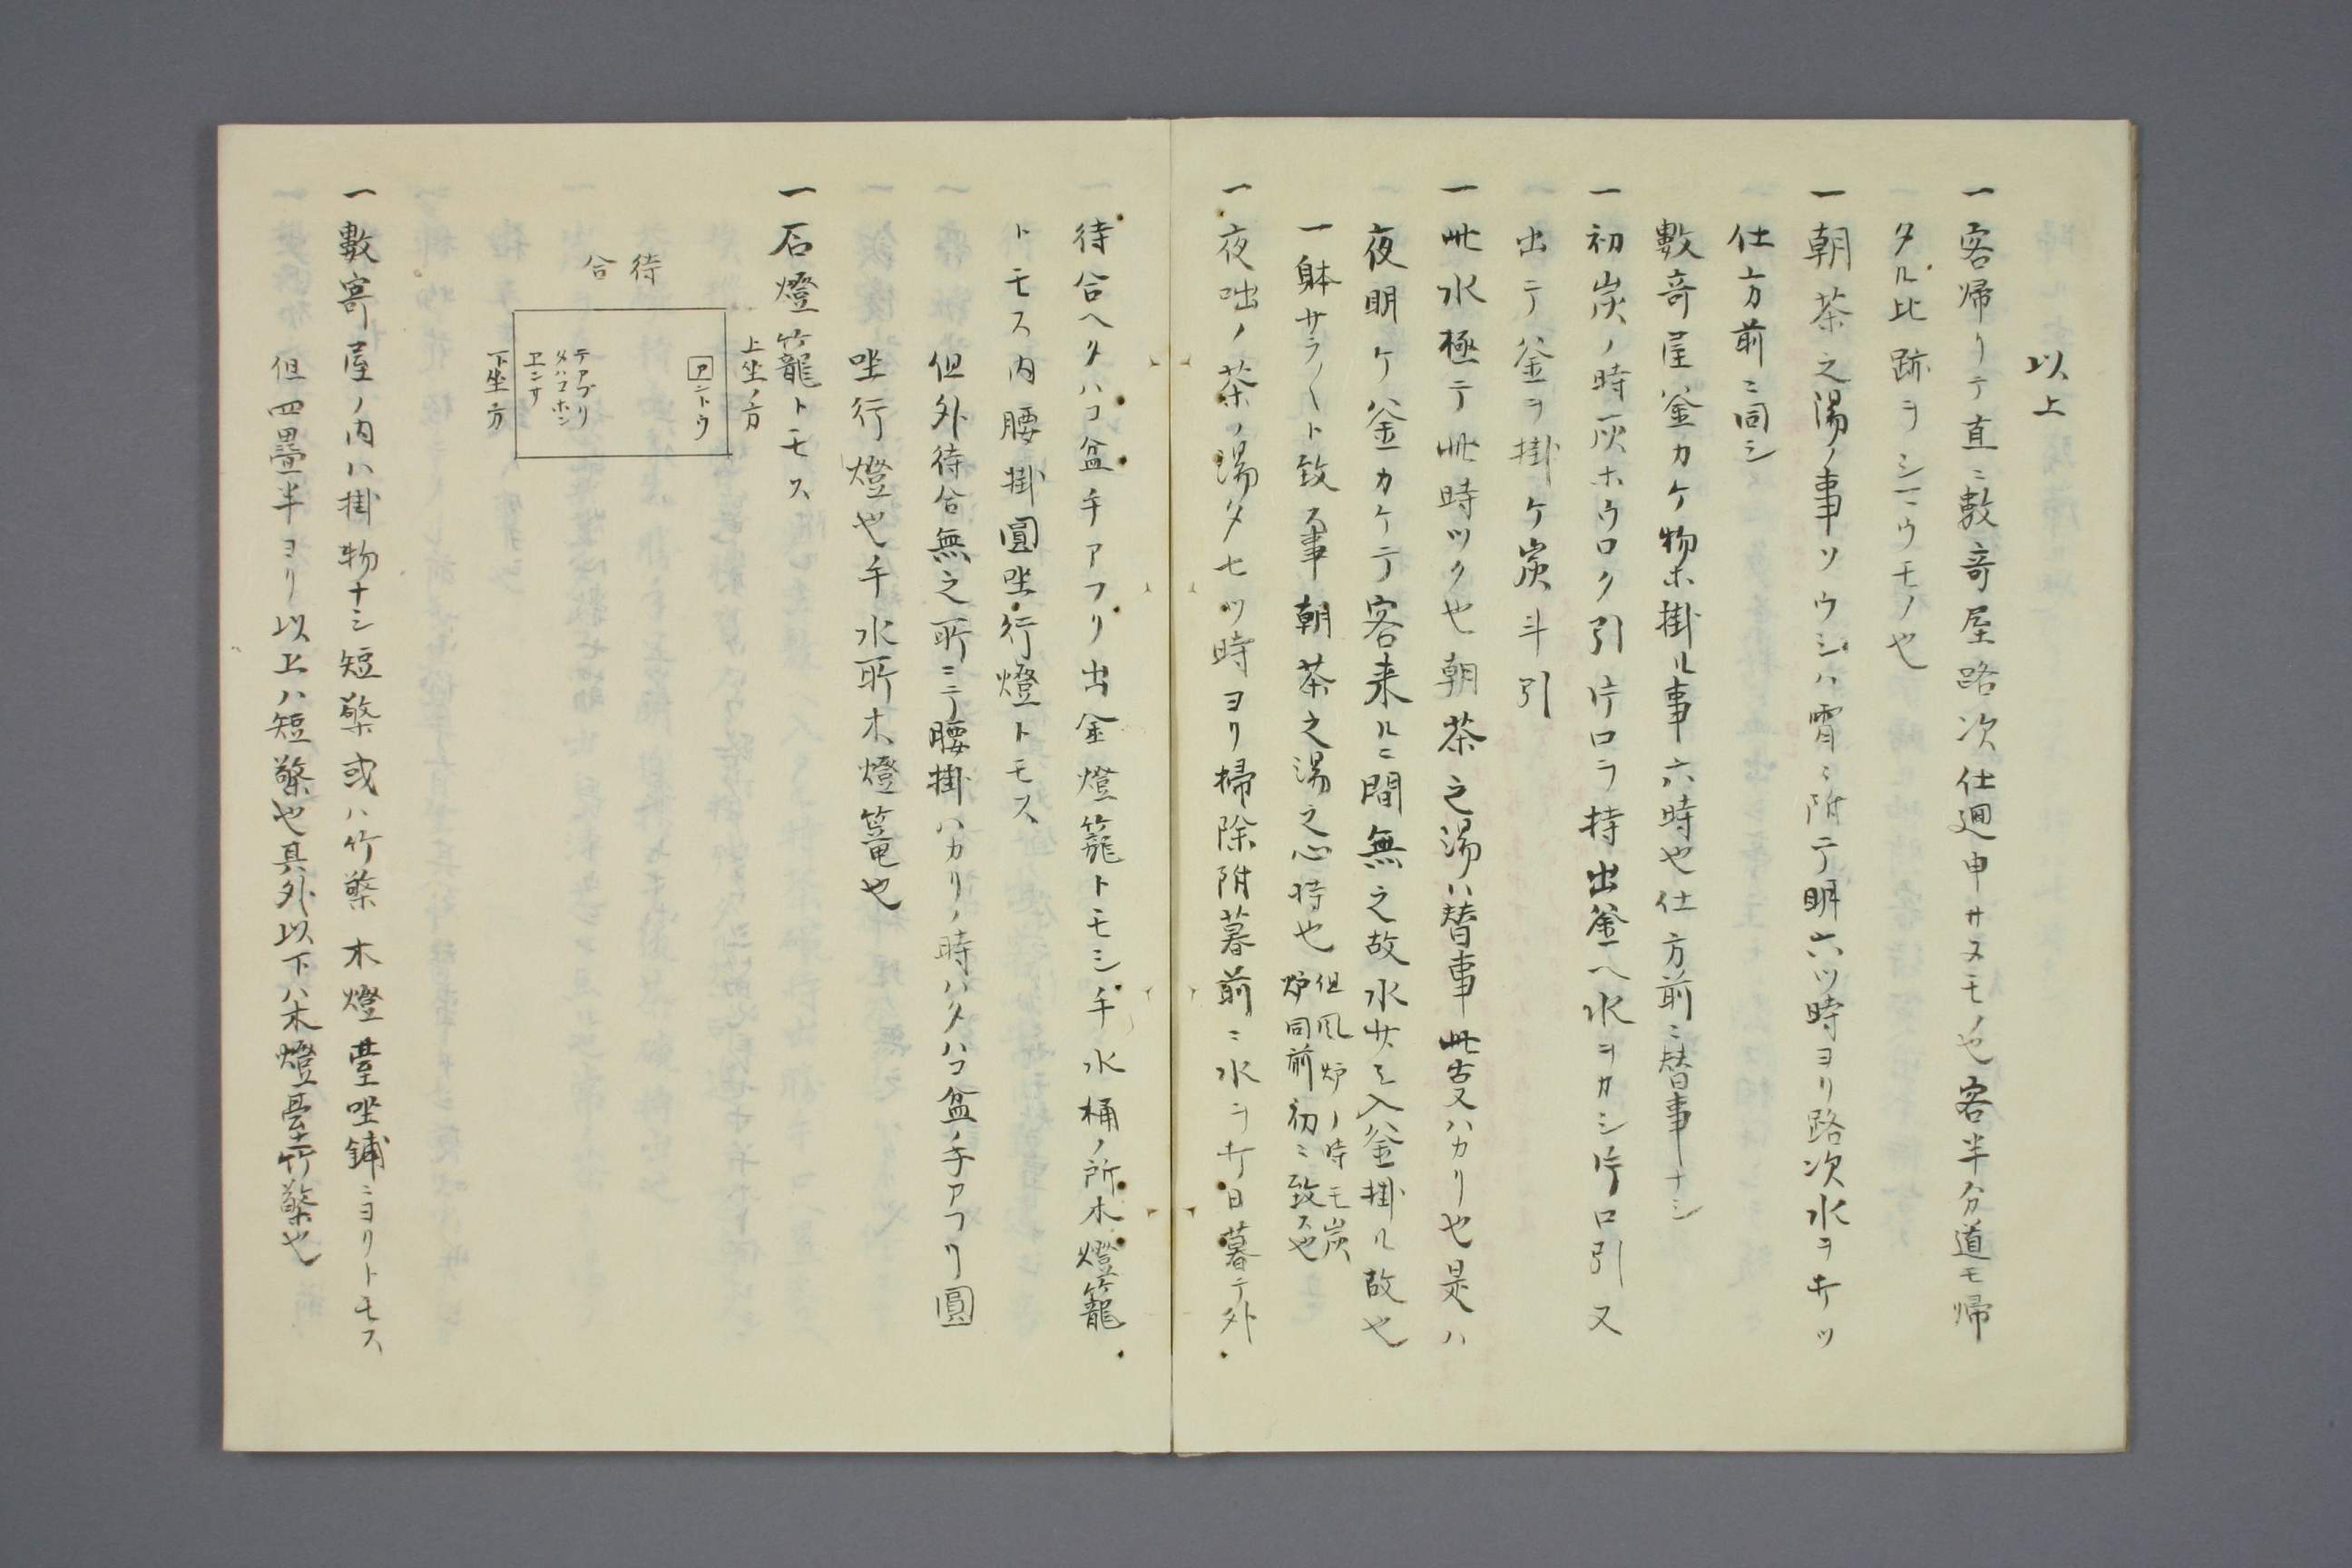 以上
一客帰リテ直ニ數竒屋路次仕廻申サヌモノ也客半分道モ帰
タル比跡ヲシマウモノ也
一朝茶之湯ノ事ソウシハ宵ニ附テ明六ツ時ヨリ路次水ヲキツ
仕方前ニ同シ
數竒屋釜カケ物ホ掛ル事六時也仕方前ニ替事ナシ
一初炭ノ時灰ホウロク引片口ヲ持出釜ヘ水ヲカシ片口引又
出テ釜ヲ掛ケ炭斗引
一此水極テ此時ツク也朝茶之湯ハ替事此叓ハカリ也是ハ
夜明ケ釜カケテ客来ルニ間無之故水サシ入釜掛ル故也
一躰サラ〱ト致ス事朝茶之湯之心持也
但風炉ノ時モ炭
炉同前初ニ致ス也
一夜咄ノ茶ノ湯夕七ツ時ヨリ掃除附暮前ニ水ヲキ日暮テ外
待合ヘタハコ盆手アフリ出金燈籠トモシ手水桶ノ所木燈籠
トモス内腰掛圓坐行燈トモス
但外待合無之所ニテ腰掛ハカリノ時ハタハコ盆手アフリ圓
坐行燈也手水所木燈篭也
一石燈籠トモス
待合
上坐ノ方
アントウ
テアブリ
タハコホン
エンサ
下坐ノ方
一數寄屋ノ内ハ掛物ナシ短檠或ハ竹檠木燈臺坐鋪ニヨリトモス
但四疊半ヨリ以上ハ短檠也其外以下ハ木燈臺竹檠也